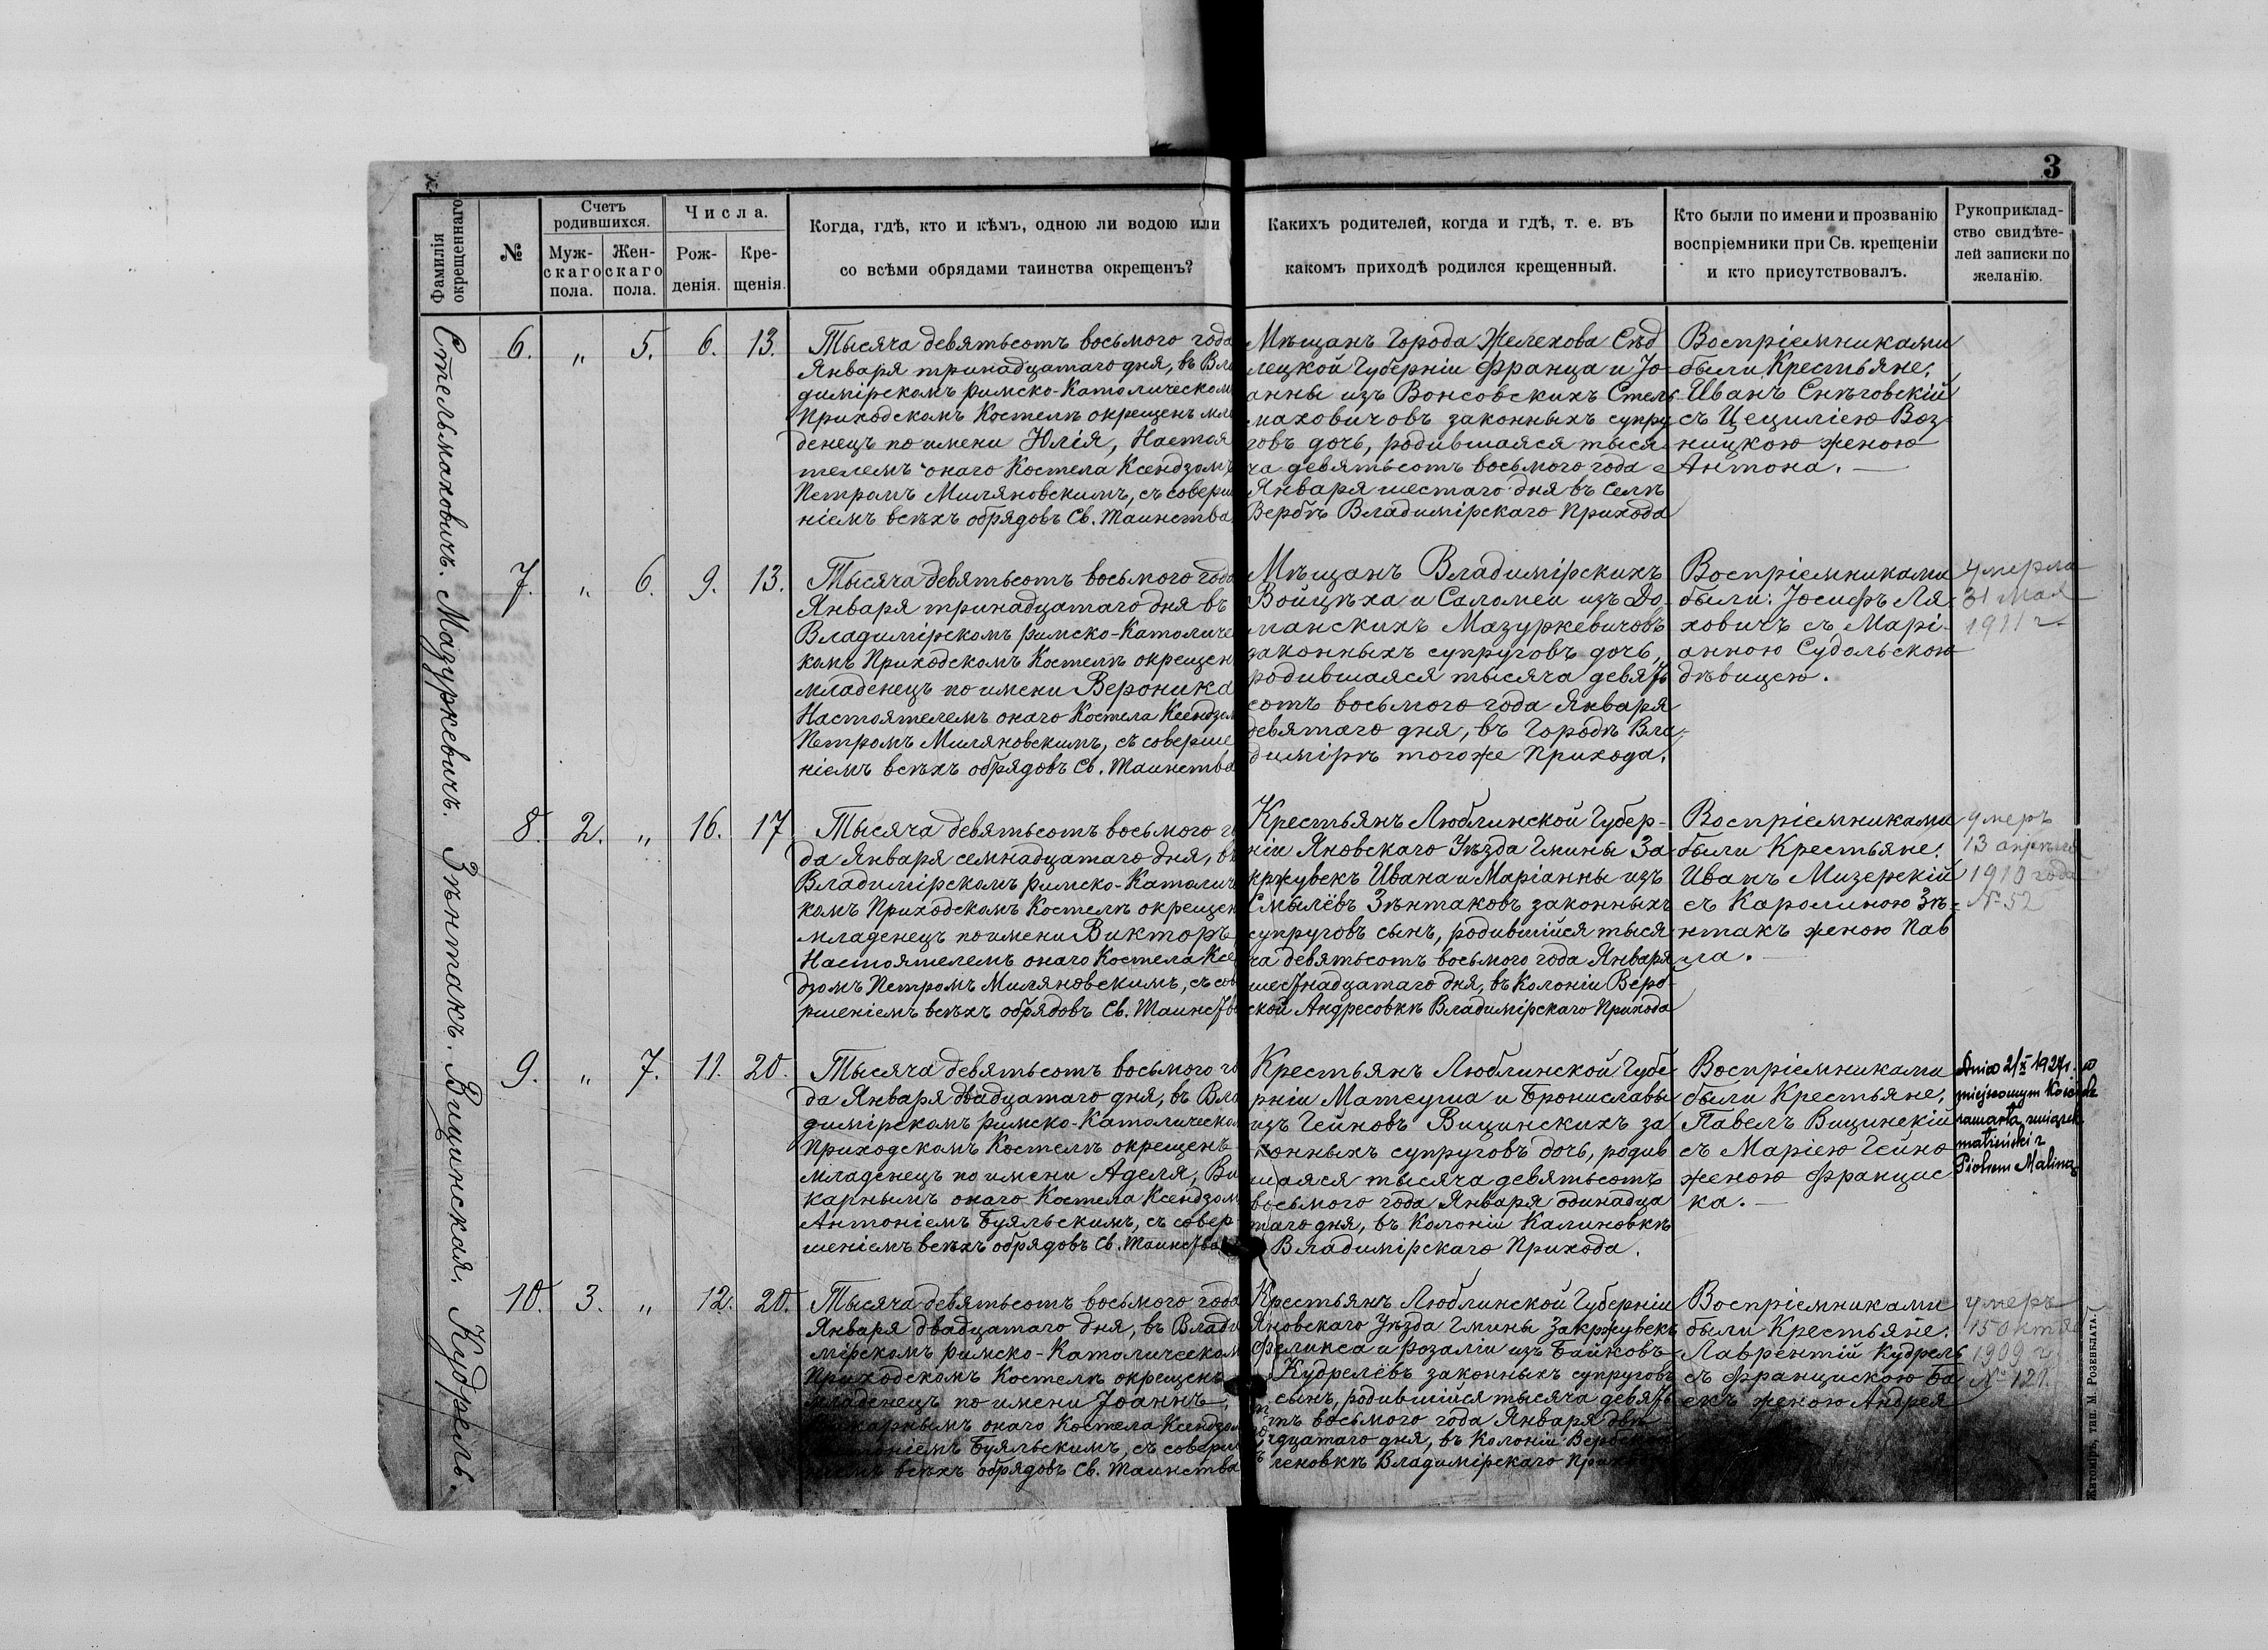 3
Фамилія окрещеннаго
№
Счетъ родившихся.
Муж-скаго пола.
Жен-скаго пола.
Числа.
Рож-денія.
Кре-щенія.
Когда, гдѣ, кто и кѣмъ, одною ли водою или
со всѣми обрядами таинства окрещенъ?
Какихъ родителей, когда и гдѣ, т. е. въ
какомъ приходѣ родился крещенный.
Кто были по имени и прозванію
воспріемники при Св. крещеніи
и кто присутствовалъ.
Рукоприклад-
ство свидѣте-
лей записки по
желанію.
Стельмаховичъ.
6. " 5. 6. 13.
Тысяча девятьсотъ восьмого года
Января тринадцатаго дня, въ Вла
димірскомъ римско-Католическом
Приходскомъ Костелѣ окрещенъ мла
денецъ по имени Юлія, Настоя
телемъ онаго Костела Ксендзомъ
Петромъ Миляновскимъ, съ соверш
ніемъ всѣхъ обрядовъ Св. Таинства
Мѣщанъ Города Желехова Сѣд
лецкой Губерніи Франца и Іо-
анны изъ Вонсовскихъ Стель
маховичовъ законныхъ супру
говъ дочь, родившаяся тыся
ча девятьсотъ восьмого года
Января шестаго дня въ Селѣ
Вербѣ Владимірскаго Прихода
Воспріемниками
были Крестьяне,
Иванъ Снѣговскій
съ Цециліею Воз-
ницкою женою
Антона. —
Мазуркевичъ.
7. " 6. 9. 13.
Тысяча девятьсотъ восьмого года
Января тринадцатаго дня въ
Владимірскомъ римско-Католиче
комъ Приходскомъ Костелѣ окрещен
младенецъ по имени Вероника
Настоятелемъ онаго Костела Ксендзом
Петромъ Миляновскимъ, съ соверше
ніемъ всѣхъ обрядовъ Св. Таинства
Мѣщанъ Владимірскихъ
Войцѣха и Саломеи изъ До-
манскихъ Мазуркевичовъ
законныхъ супруговъ дочь,
родившаяся тысяча девять
сотъ восьмого года Января
девятаго дня, въ Городѣ Вла-
димірѣ тогоже Прихода.
Воспріемниками
были: Іосифъ Ля-
ховичъ съ Марі-
анною Судольскою
дѣвицею.
Умерла
31 Мая
1911 г.
Зѣнтакъ.
8. 2. " 16. 17
Тысяча девятьсотъ восьмого го
да Января семнадцатаго дня, въ
Владимірскомъ римско-Католиче
комъ Приходскомъ Костелѣ окрещен
младенецъ по имени Викторъ
Настоятелемъ онаго Костела Ксе
дзомъ Петромъ Миляновскимъ, съ сов
ршеніемъ всѣхъ обрядовъ Св. Таинства
Крестьянъ Люблинской Губер-
ніи Яновскаго Уѣзда Гмины За-
кржувекъ Ивана и Маріанны изъ
Смылёвъ Зѣнтаковъ законныхъ
супруговъ сынъ, родившійся тыся
ча девятьсотъ восьмого года Января
шестнадцатаго дня, въ Колоніи Верб-
ской Андресовкѣ Владимірскаго Прихода
Воспріемниками
были Крестьяне:
Иванъ Мизерскій
съ Каролиною Зѣ-
нтакъ женою Пав
ла. —
умеръ
13 апрѣля
1910 года
№ 52
Вицинская.
9. " 7. 11. 20.
Тысяча девятьсотъ восьмого го
да Января двадцатаго дня, въ Вла
димірскомъ римско-Католическом
Приходскомъ Костелѣ окрещенъ
младенецъ по имени Аделя, Ви
карнымъ онаго Костела Ксендзом
Антоніемъ Буяльскимъ, съ совер-
шеніемъ всѣхъ обрядовъ Св. Таинства
Крестьянъ Люблинской Губе
рніи Матеуша и Брониславы
изъ Гейновъ Вицинскихъ за
конныхъ супруговъ дочь, родив
шаяся тысяча девятьсотъ
восьмого года Января одинадца
таго дня, въ Колоніи Калиновкѣ
Владимірскаго Прихода.
Воспріемниками
были Крестьяне,
Павелъ Вицинскій
съ Маріею Гейно
женою Францис
ка. —
Dnia 2/X 1927r. w
miejscowym Kościele
zawarła związek
małżeński z
Piotrem Maliną
Кудрель.
10. 3. " 12. 20.
Тысяча девятьсотъ восьмого года
Января двадцатаго дня, въ Влади
мірскомъ римско-Католическом
Приходскомъ Костелѣ окрещенъ
младенецъ по имени Іоаннъ,
карнымъ онаго Костела Ксендзом
ніемъ Буяльскимъ, съ соверш
всѣхъ обрядовъ Св. Таинства
Крестьянъ Люблинской Губерніи
Яновскаго Уѣзда Гмины Закржувекъ
Феликса и Розаліи изъ Байковъ
Кудрелёвъ законныхъ супруговъ
сынъ, родившійся тысяча девять
тъ восьмого года Января двѣ-
дцатаго дня, въ Колоніи
Владимірскаго
Воспріемниками
были Крестьяне:
Лаврентій Кудрель
съ Францискою Ба
екъ женою Андрея
умеръ
15 Октя
1909 г.
№ 121.
Житоміръ, тип. М. Розенблата.